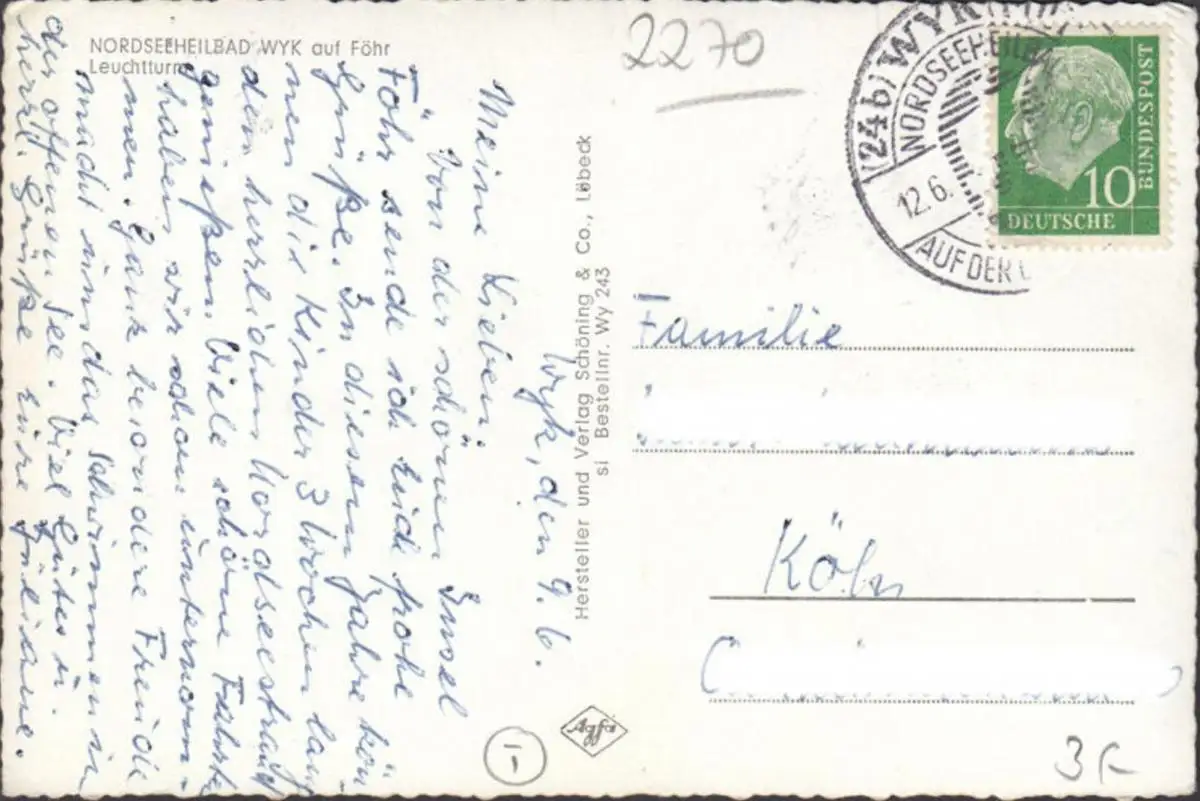 NORDSEEHEILBAD WYK auf Föhr
Leuchtturm
2270
Wyk, den 9. 6.
Meine Lieben.
Von der schönen Insel
Föhr sende ich Euch frohe
Grüße. In diesem Jahre kön-
nen die Kinder 3 Wochen lang
den herrlichen Nordseestrand
genießen. Viele schöne Fahrten
haben wir schon unternom-
men. Ganz besondere Freude
macht uns das Schwimmen in
der offenen See. Viel Gutes u.
herzl. Grüße Eure Juliane.
Hersteller und Verlag Schöning & Co., Lübeck
si Bestellnr. Wy 243
Agfa
(24b) WYK
NORDSEEHEILB
12.6.
AUF DER
10
DEUTSCHE
BUNDESPOST
Familie
Köln
3